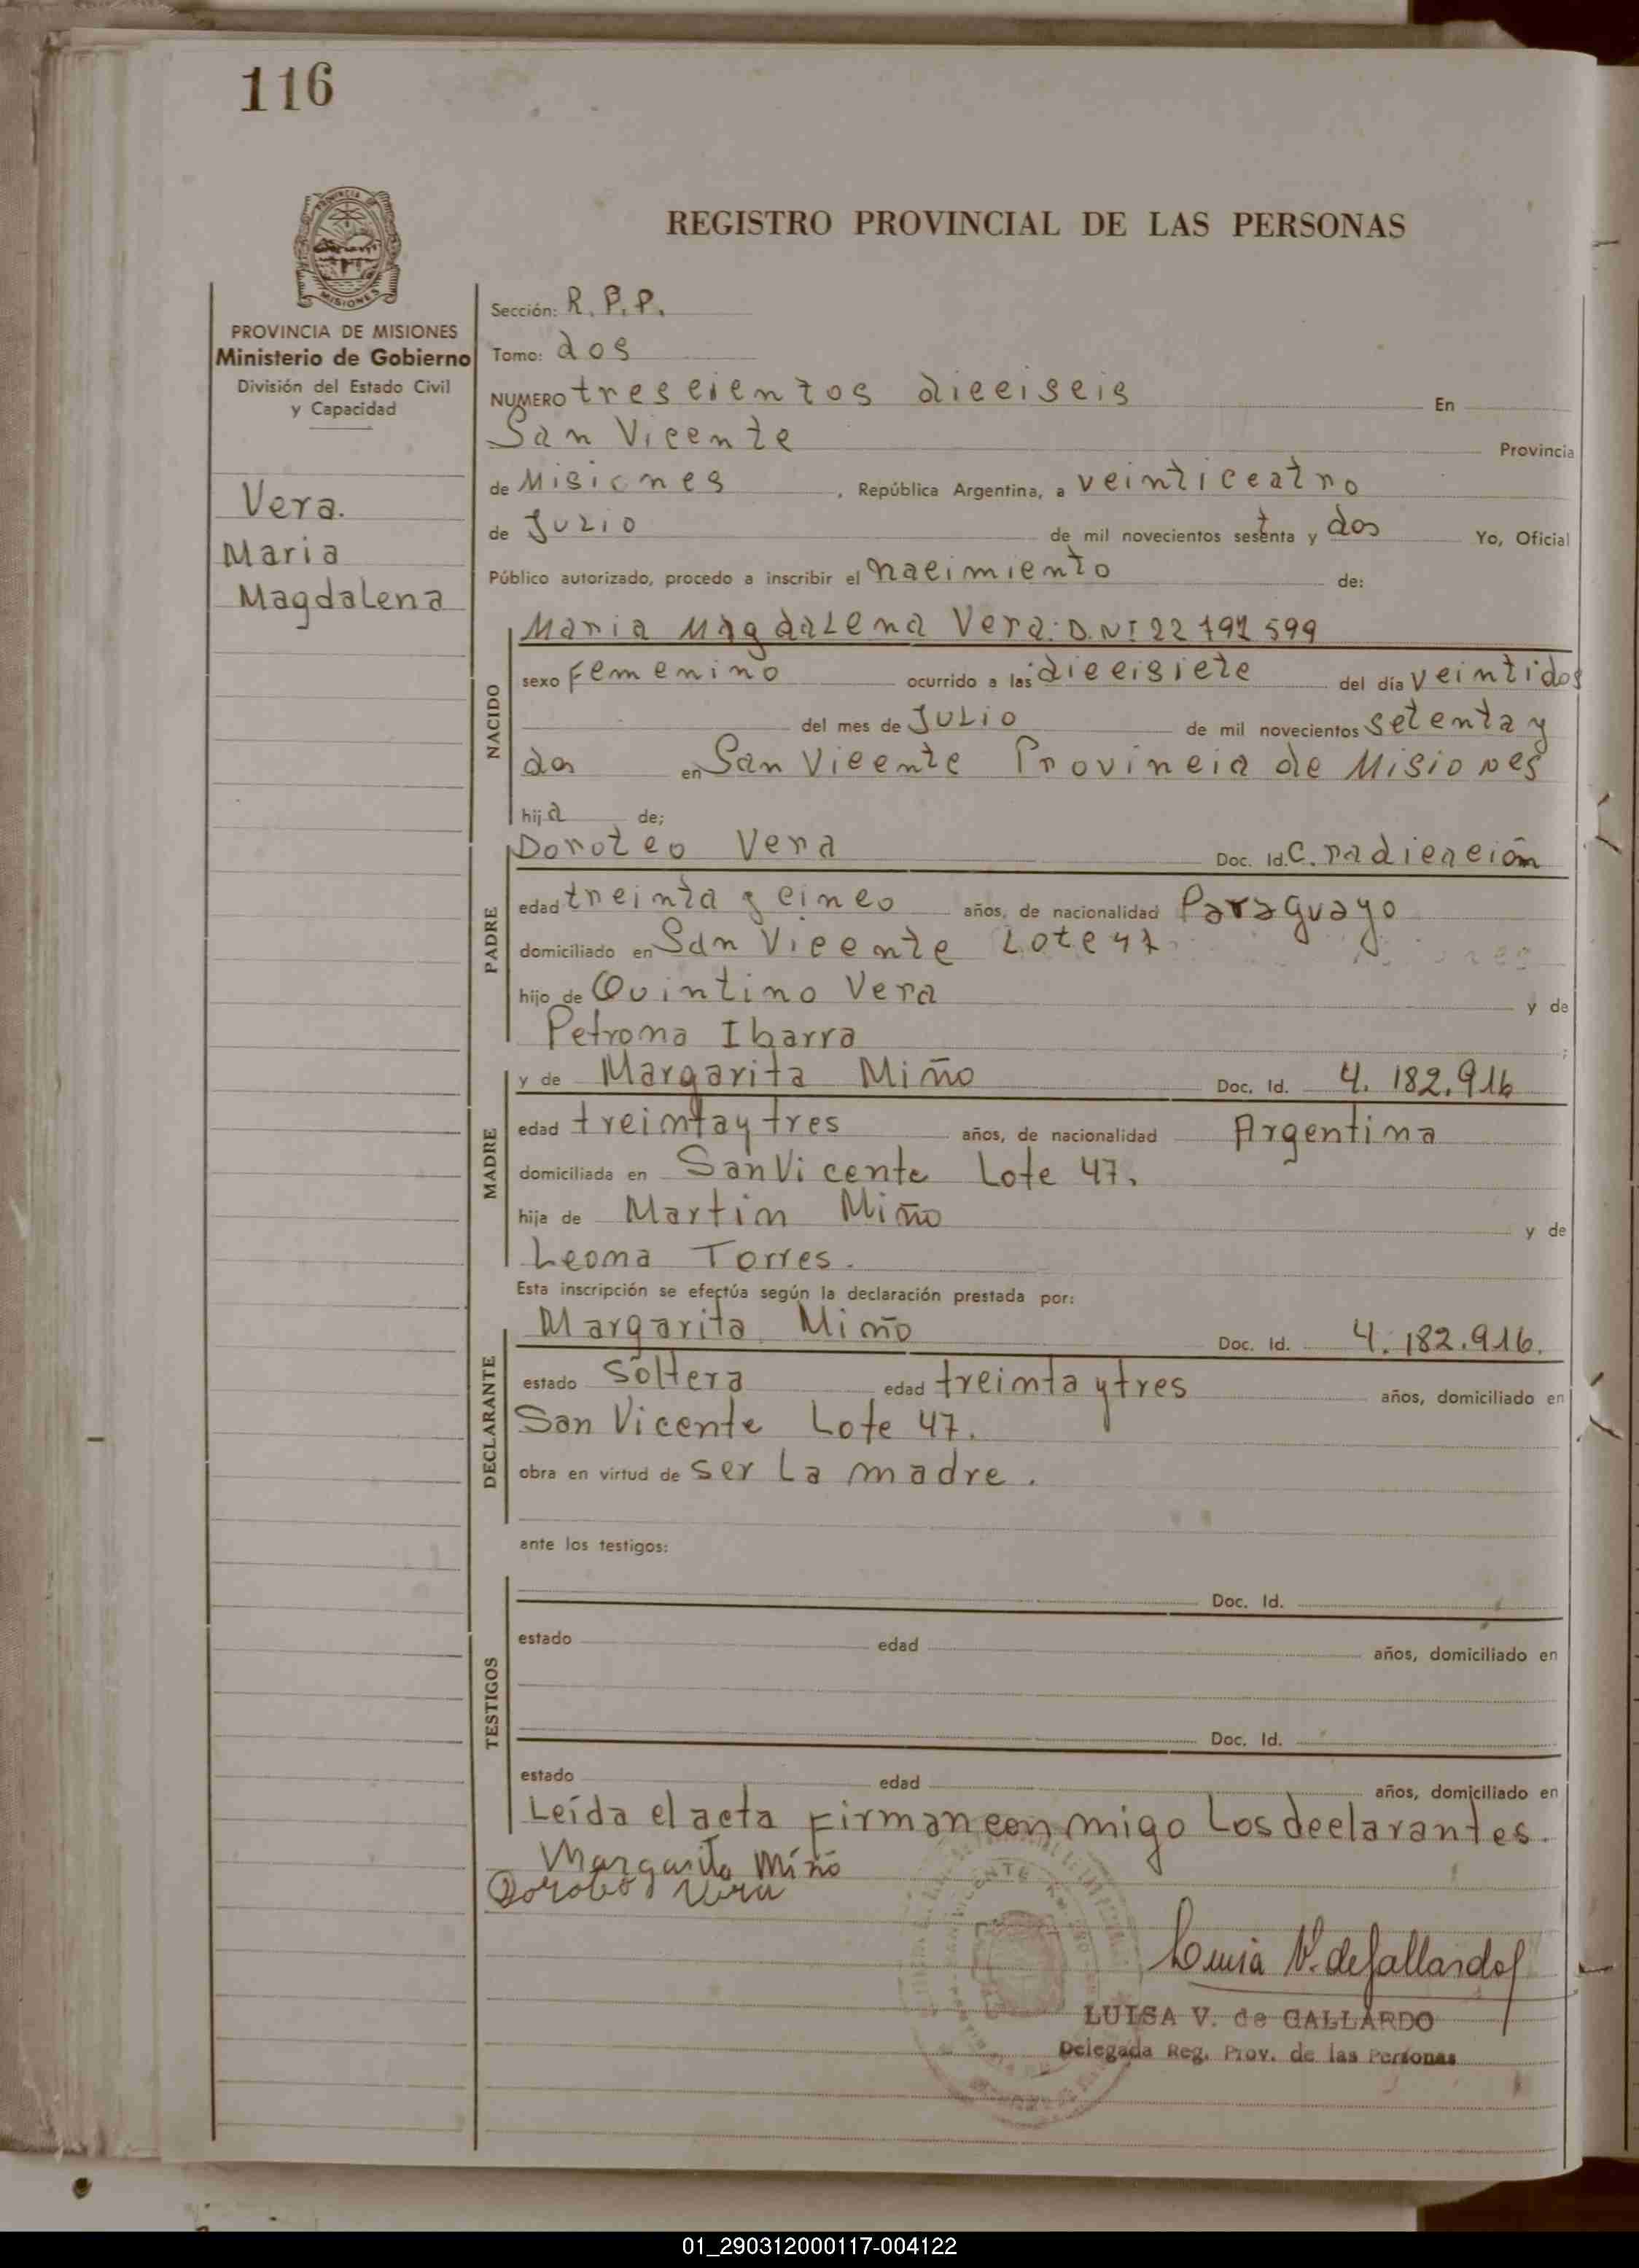 116
PROVINCIA DE MISIONES
Ministerio de Gobierno
División del Estado Civil
y Capacidad
Vera.
Maria
Magdalena
REGISTRO PROVINCIAL DE LAS PERSONAS
Sección: R. P. P.
Tomo: dos
NUMERO trescientos dieciseis En
San Vicente Provincia
de Misiones, República Argentina, a veinticuatro
de Julio de mil novecientos setenta y dos Yo, Oficial
Público autorizado, procedo a inscribir el nacimiento de:
NACIDO
Maria Magdalena Vera. D.N.I 22 791 599
sexo Femenino ocurrido a las diecisiete del día veintidos
del mes de Julio de mil novecientos setenta y
dos en San Vicente Provincia de Misiones
hija de;
PADRE
Doroteo Vera Doc. Id. C. radicación
edad treinta y cinco años, de nacionalidad Paraguayo
domiciliado en San Vicente Lote 47
hijo de Quintino Vera y de
Petrona Ibarra;
MADRE
y de Margarita Miño Doc. Id. 4.182.916
edad treinta y tres años, de nacionalidad Argentina
domiciliada en San Vicente Lote 47.
hija de Martin Miño y de
Leona Torres.
Esta inscripción se efectúa según la declaración prestada por:
DECLARANTE
Margarita Miño Doc. Id. 4.182.916.
estado soltera edad treinta y tres años, domiciliado en
San Vicente Lote 47.
obra en virtud de ser La madre.
ante los testigos:
TESTIGOS
Doc. Id.
estado edad años, domiciliado en
Doc. Id.
estado edad años, domiciliado en
Leída el acta Firman conmigo Los declarantes.
Margarita Miño
Doroteo Vera
Luisa V. de Gallardo
LUISA V. de GALLARDO
Delegada Reg. Prov. de las Personas
01_290312000117-004122